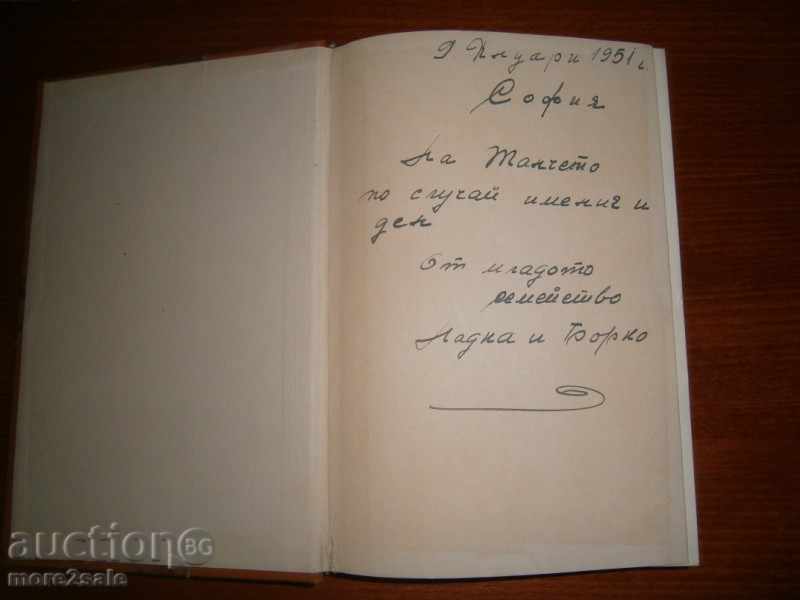 9 Януари 1951 г.
София
На Танчето
по случай имения и
ден
От младото
семейство
Надка и Борко
auctionBG
more2sale